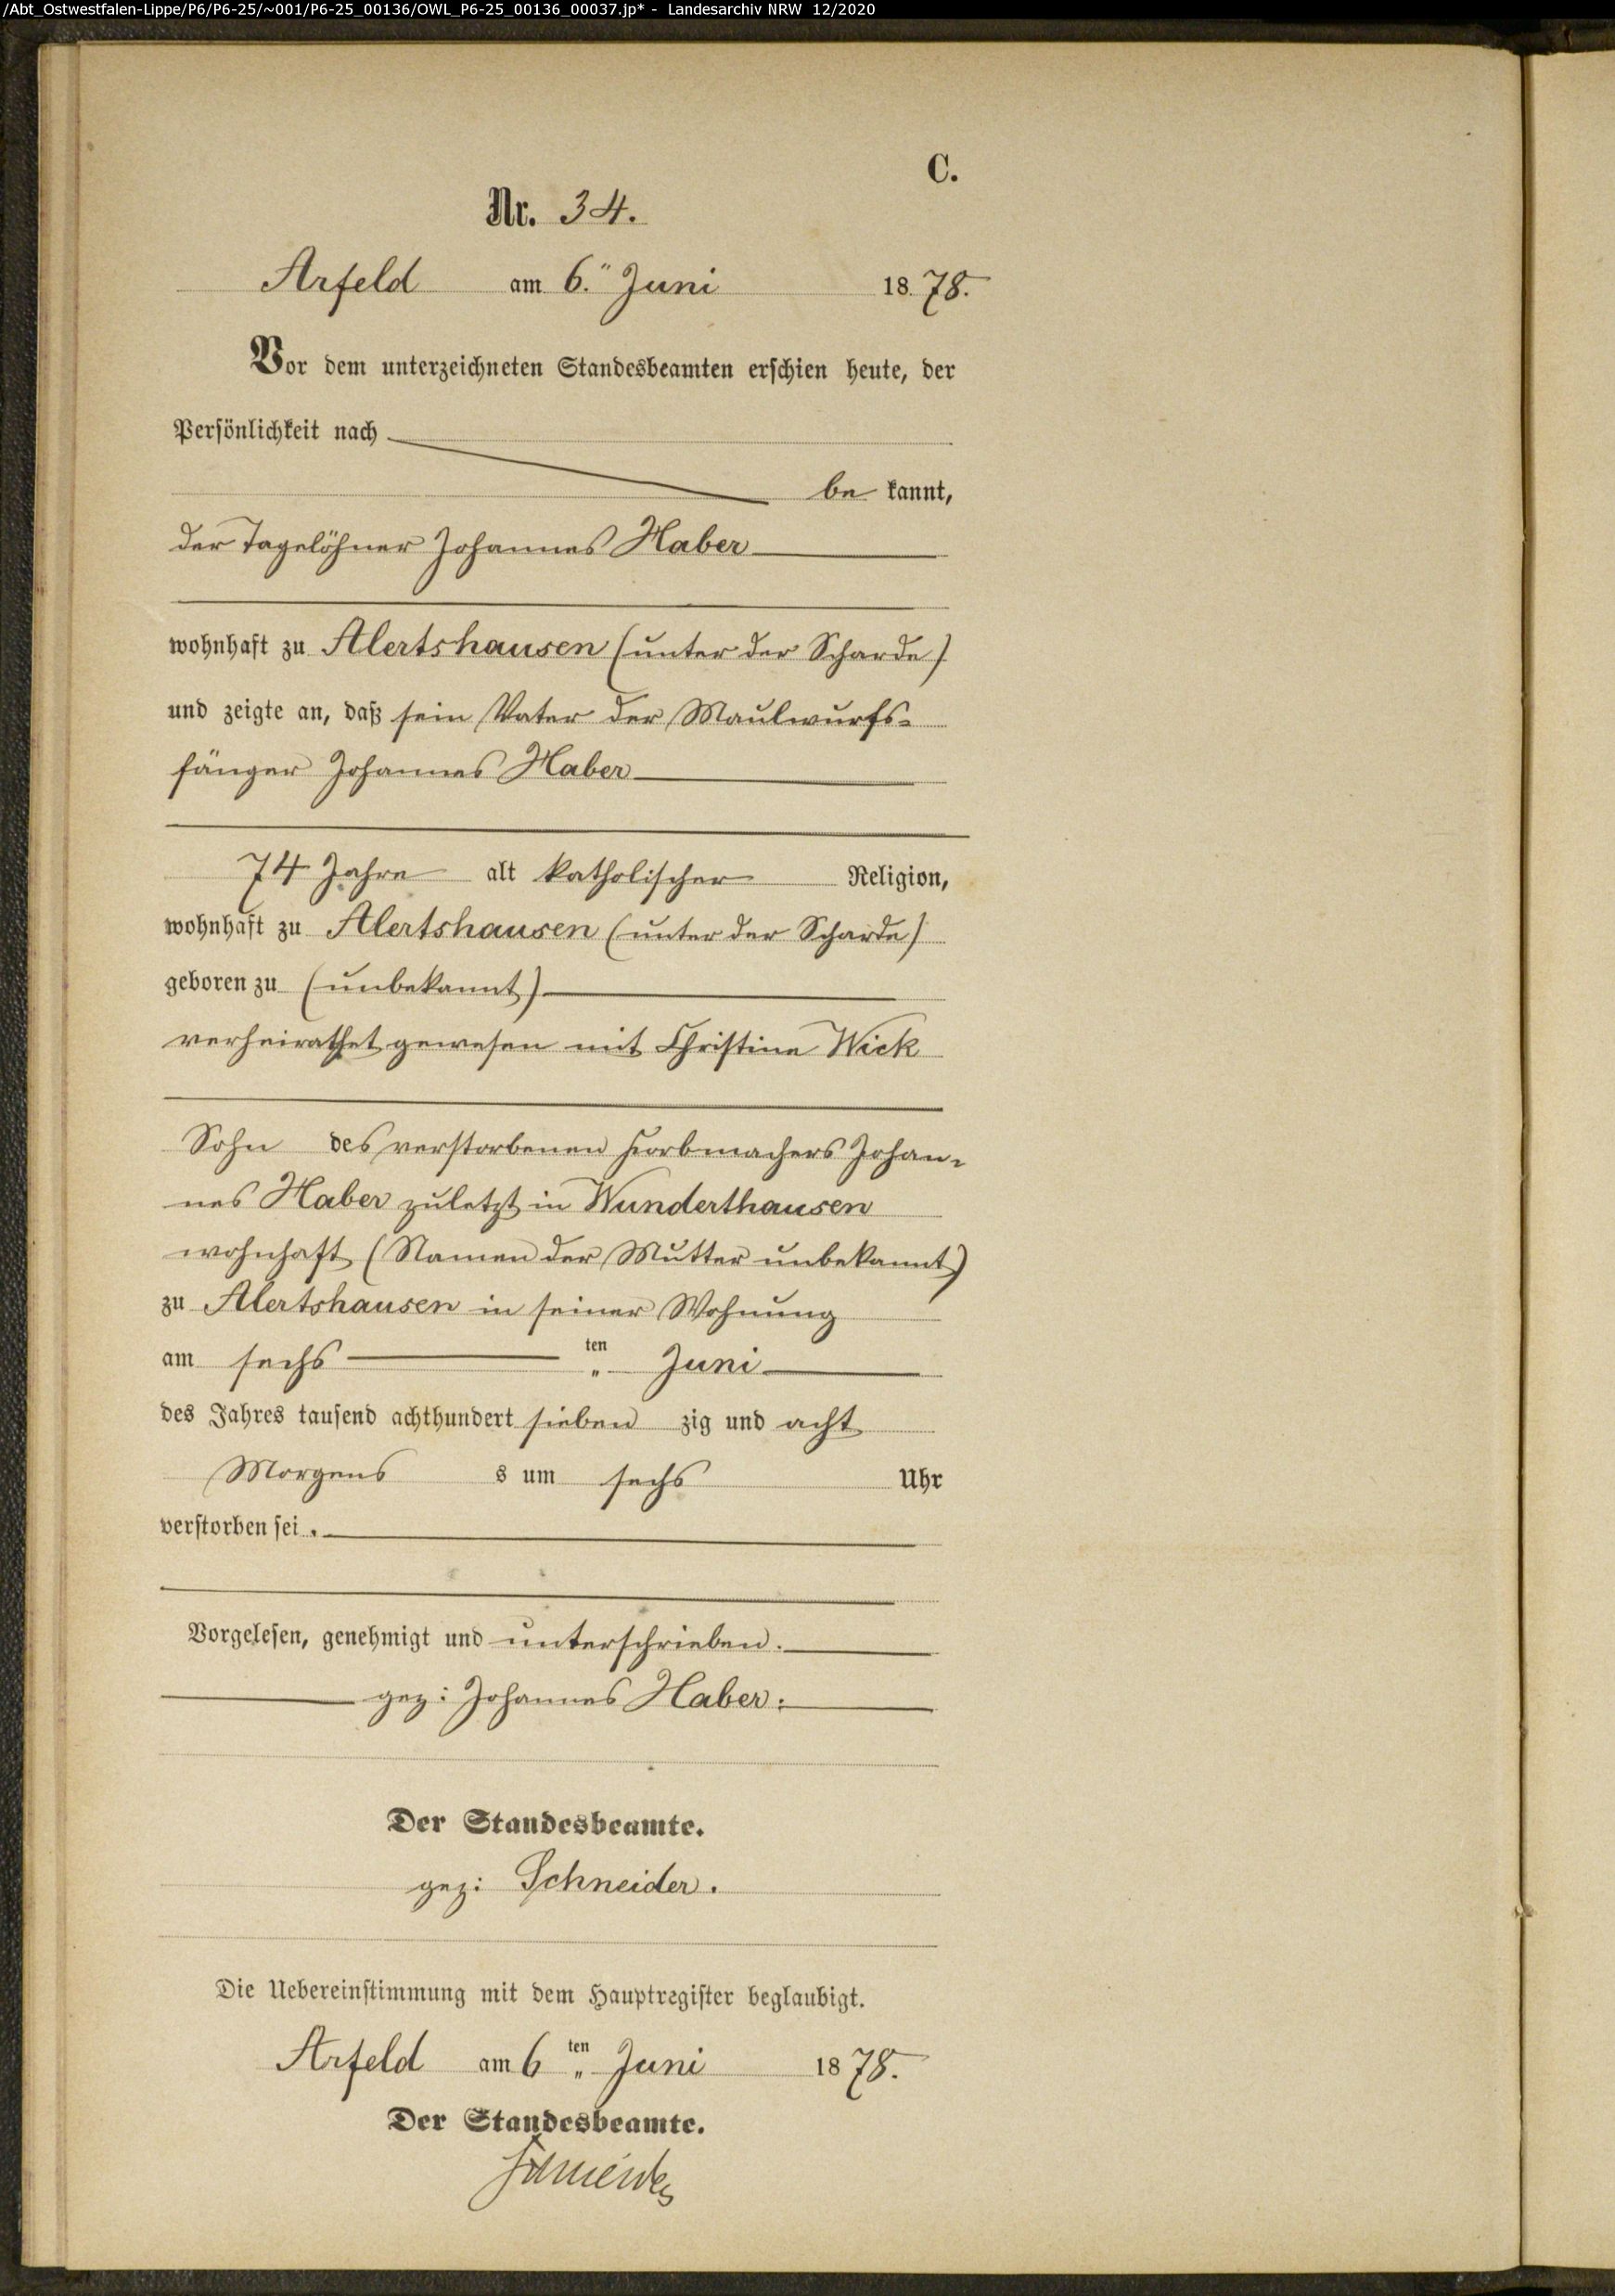 /Abt_Ostwestfalen-Lippe/P6/P6-25/~001/P6-25_00136/OWL_P6-25_00136_00037.jp* - Landesarchiv NRW 12/2020
C.
Nr. 34.
Arfeld am 6." Juni 1878.
Vor dem unterzeichneten Standesbeamten erschien heute, der
Persönlichkeit nach
be kannt,
der Tagelöhner Johannes Haber
wohnhaft zu Alertshausen (unter der Scharde)
und zeigte an, daß sein Vater der Maulwurfs-
fänger Johannes Haber
74 Jahre alt katholischer Religion,
wohnhaft zu Alertshausen (unter der Scharde)
geboren zu (unbekannt)
verheirathet gewesen mit Christine Wick
Sohn des verstorbenen Korbmachers Johan-
nes Haber zuletzt in Wunderthausen
wohnhaft (Namen der Mutter unbekannt)
zu Alertshausen in seiner Wohnung
am sechs ten Juni
des Jahres tausend achthundert sieben zig und acht
Morgens s um sechs Uhr
verstorben sei.
Vorgelesen, genehmigt und unterschrieben.
gez: Johannes Haber.
Der Standesbeamte.
gez: Schneider.
Die Uebereinstimmung mit dem Hauptregister beglaubigt.
Arfeld am 6 ten Juni 1878.
Der Standesbeamte.
Schneider